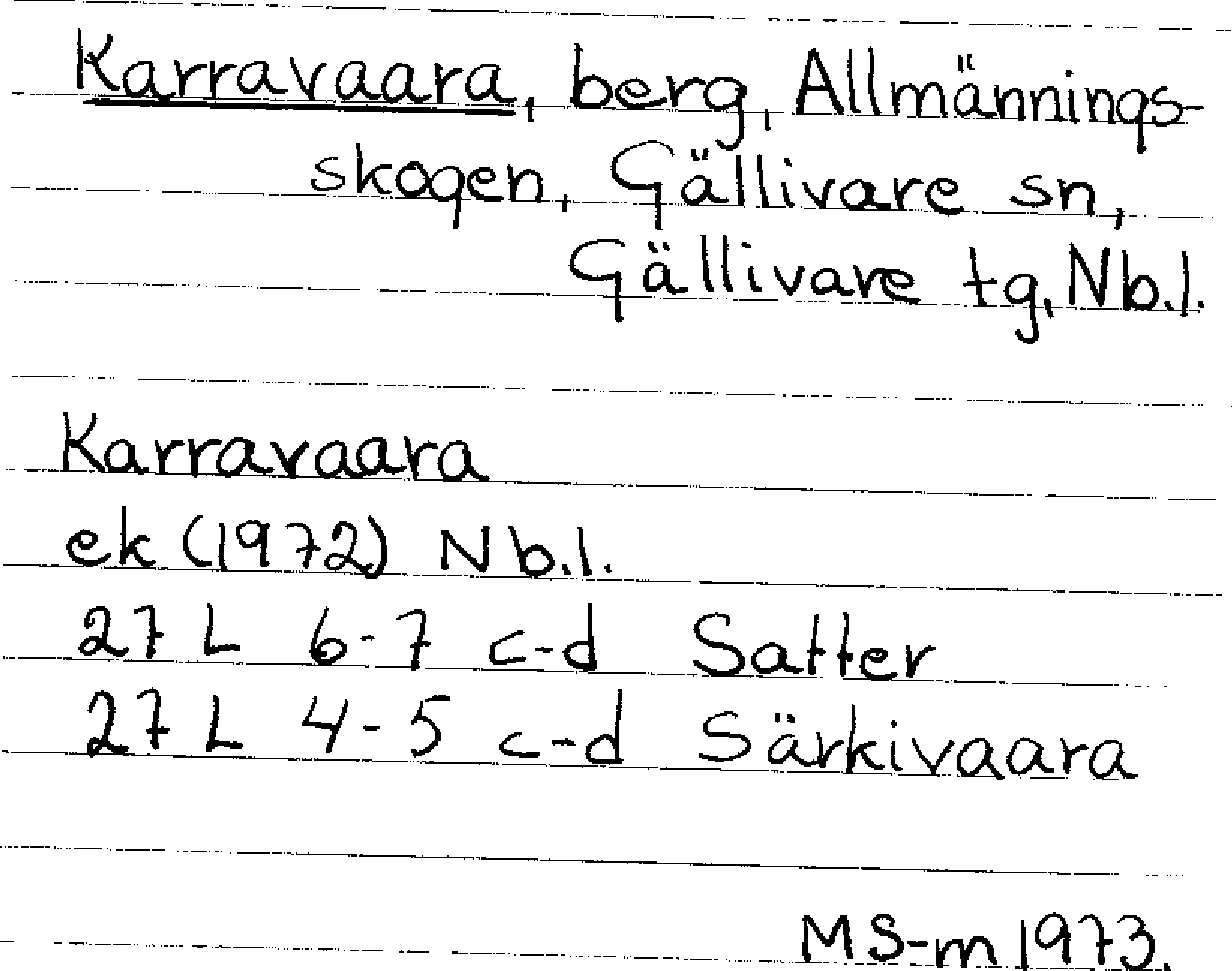 Karravaara, berg, Allmännings-
skogen, Gällivare sn,
Gällivare tg, Nb.l.
Karravaara
ek (1972) Nb.l.
27 L 6-7 c-d Satter
27 L 4-5 c-d Särkivaara
MS-m 1973.